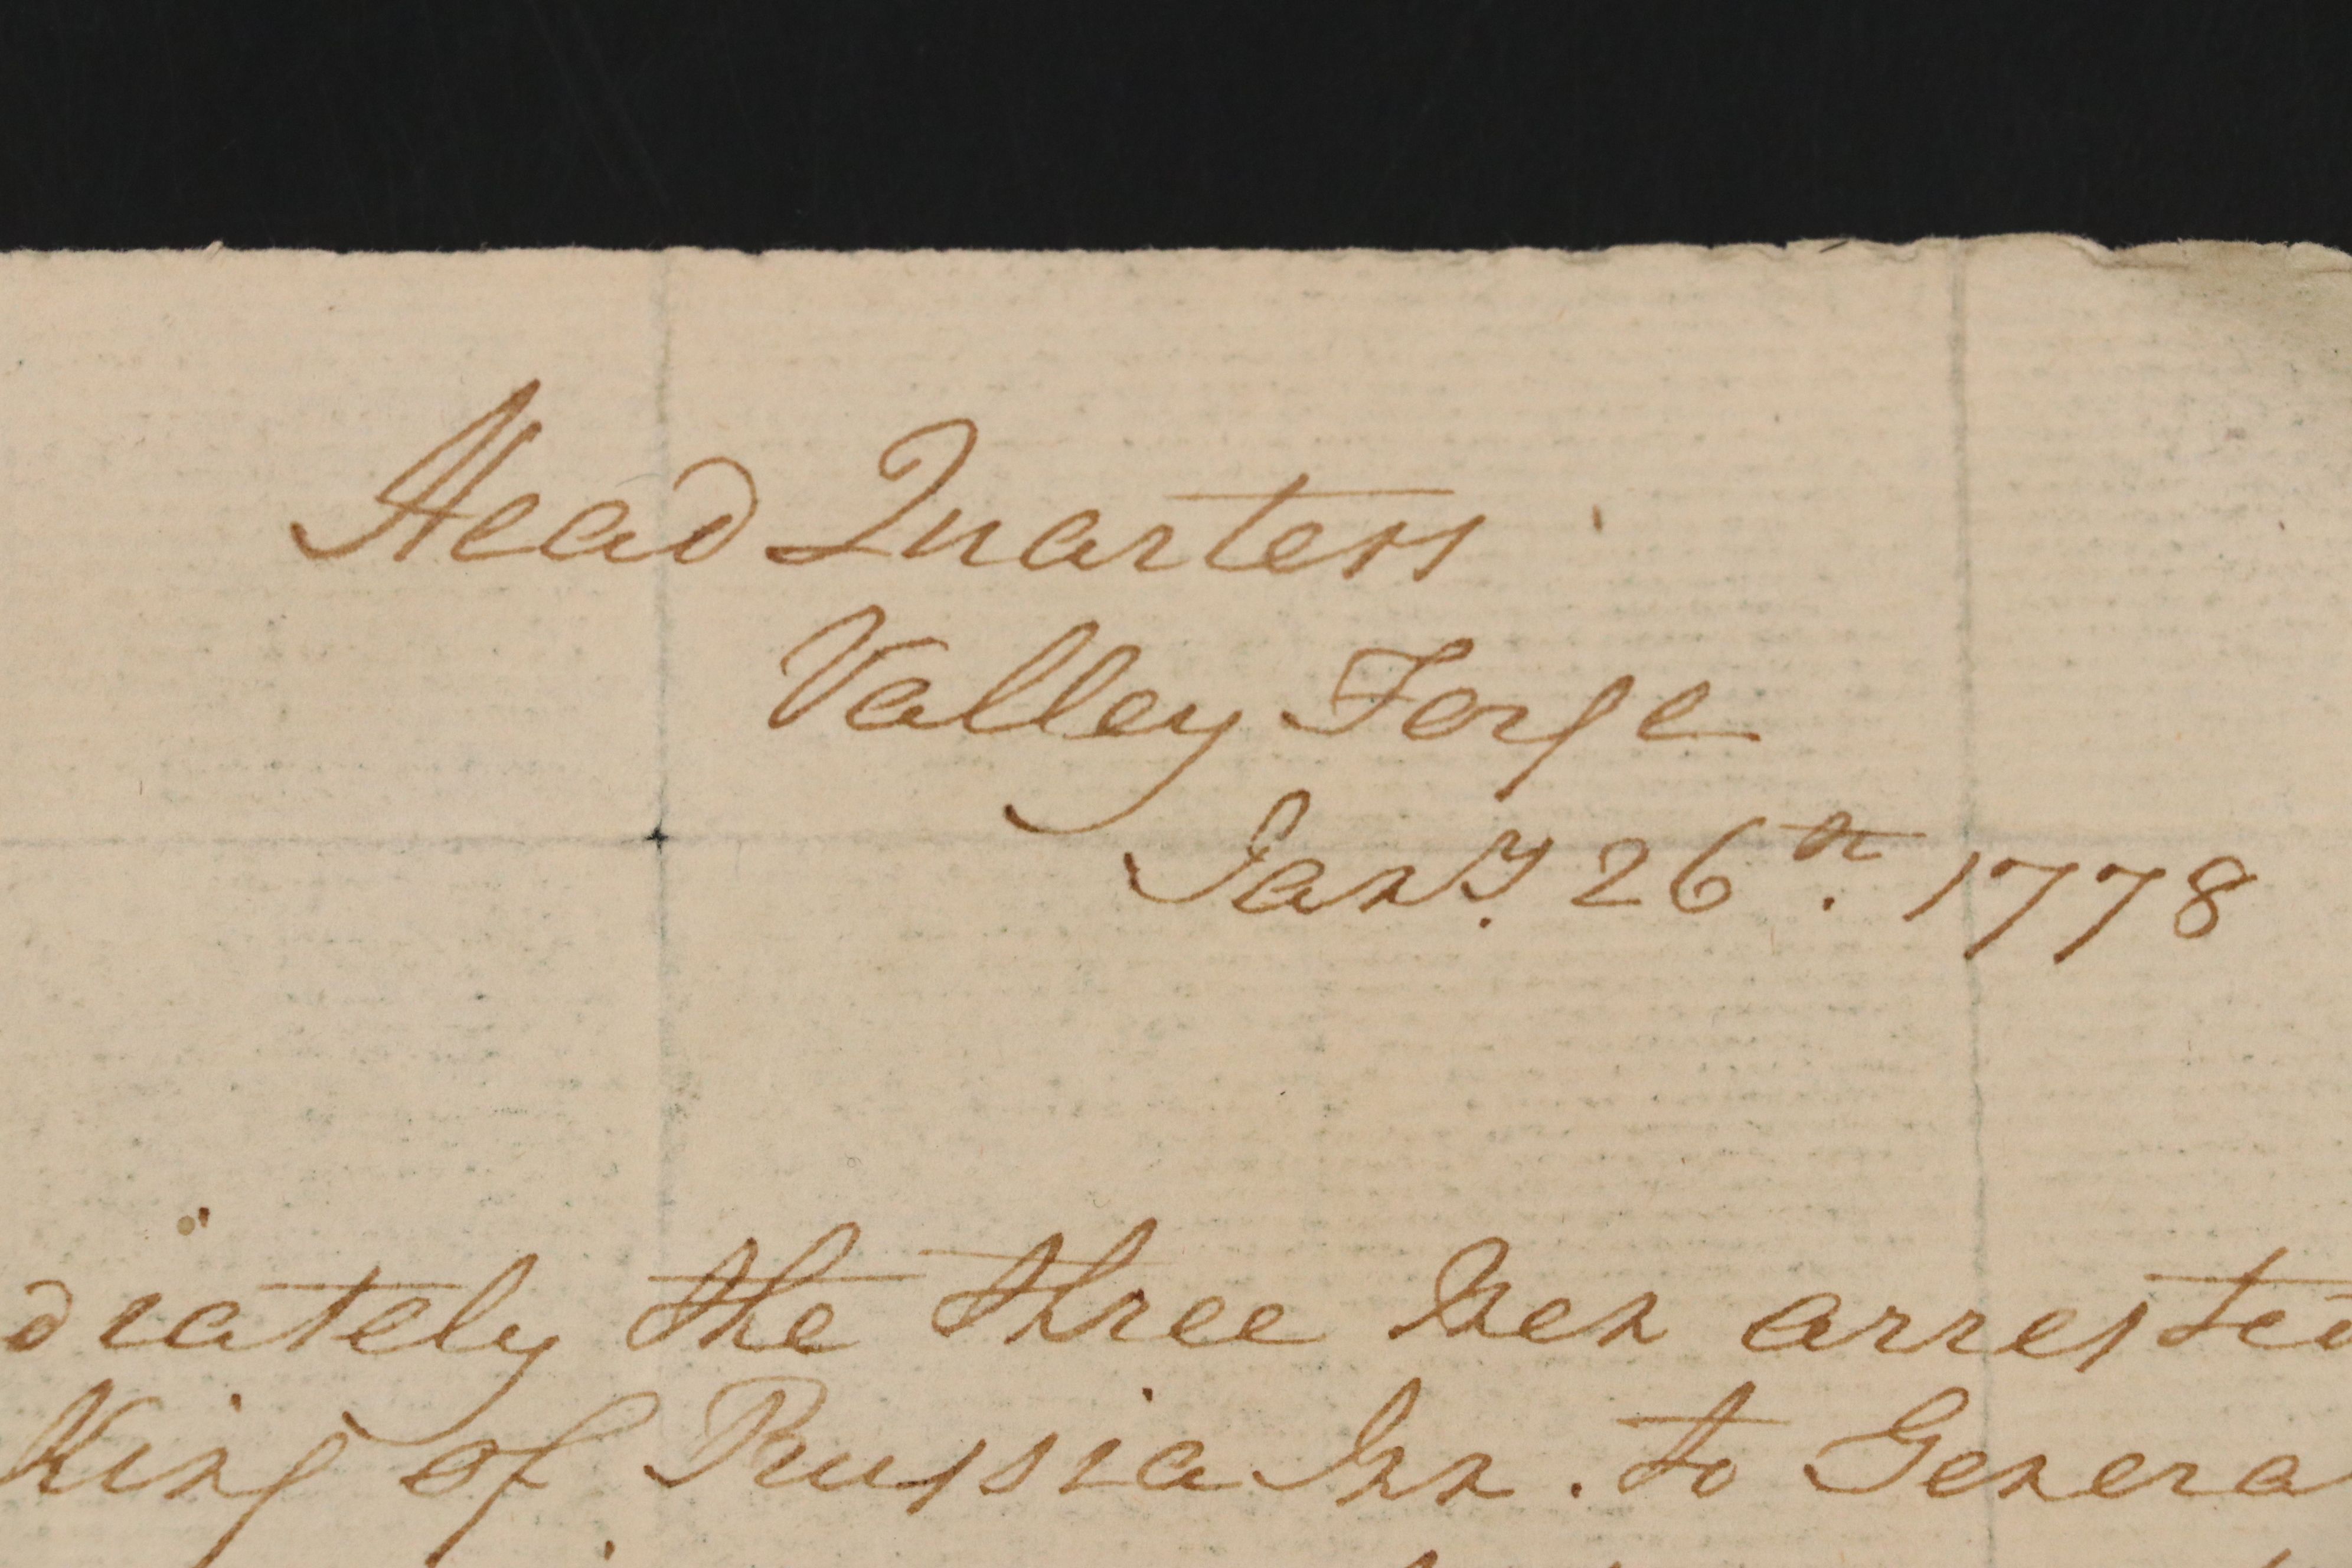 Head Quarters
Valley Forge
Jany. 26th. 1778
diately the three Men arrested
King of Prussia Inn. to Genera